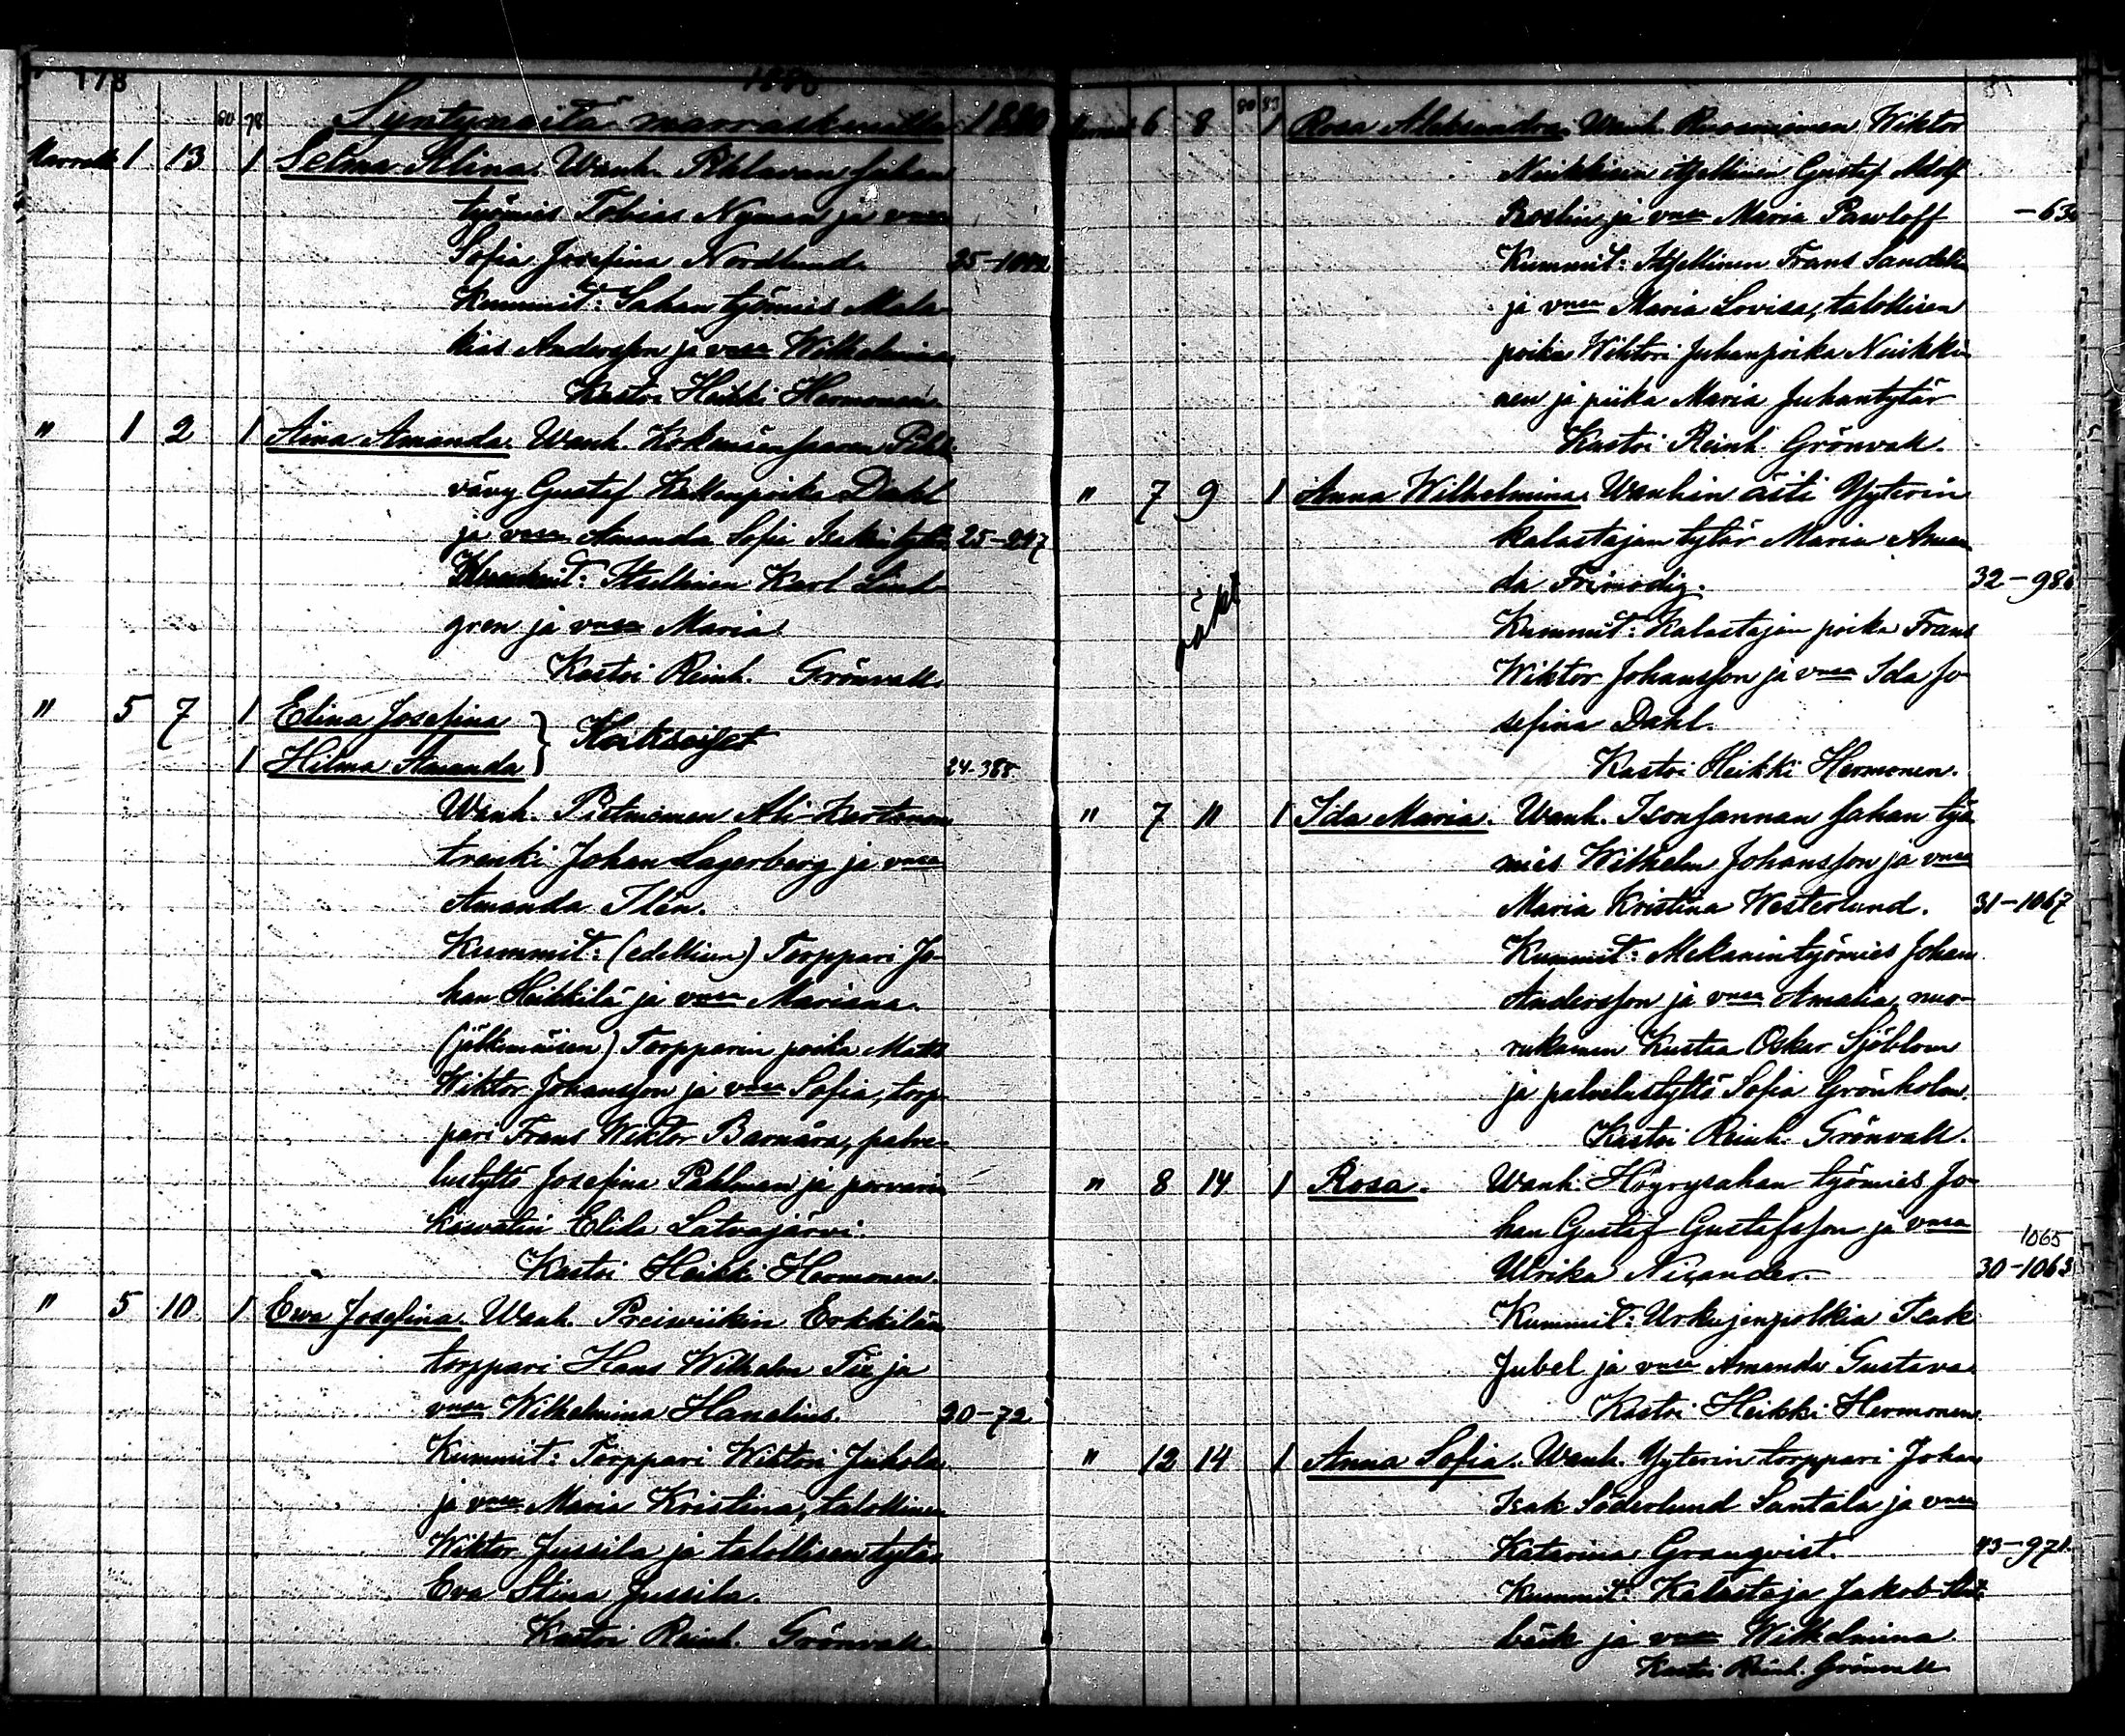 178
1880
80 78 Syntyneitä marraskuulla 1880
Marrask. 1 13 1 Selma Alina. Wanh. Pihlavan sahan
työmies Tobias Nyman ja vmsa
Sofia Josefina Nordlund. 25-1002
Kummit: Sahan työmies Mala-
kias Andersson ja vmsa Wilhelmina
Kastoi Heikki Hermonen.
" 1 2 1 Aina Amanda. Wanh.
vävy Gustaf Dahl
ja vmsa Amanda Sofia 25-297
Kummit: Itsellinen Karl Lind-
gren ja vmsa Maria.
Kastoi Reinh. Grönvall.
" 5 7 1 Elina Josefina } Kaksoiset
1 Hilma Amanda 24-388
Wanh. Pietniemen Ali-Kertunen
trenki Johan Lagerberg ja vmsa
Amanda Ilén.
Kummit: (edellisen) Torppari Jo-
han Heikkilä ja vmsa Mariana.
(jälkimäisen) Torpparin poika Mats
Wiktor Johansson ja vmsa Sofia, torp-
pari Frans Wiktor palve-
lustyttö Josefina Påhlman ja porvarin
kasvatti Elida Latvajärvi.
Kastoi Heikki Hermonen.
" 5 10 1 Ewa Josefina. Wanh. Preiviikin Erkkilän
torppari Hans Wilhelm ja
vmsa Wilhelmina Hanelius. 20-72
Kummit: Torppari Wiktor Juhola
ja vmsa Maria Kristina, talollinen
Wiktor Jussila ja talollisen tytär
Eva Stina Jussila.
Kastoi Reinh. Grönvall.
80 83
Marrask. 6 8 1 Rosa Aleksandra. Wanh. Ruosniemen Wiktor
Nuikkisen itsellinen Gustaf Adolf
ja vmsa Maria Pawloff -630
Kummit: Itsellinen Frans
ja vmsa Maria Lovisa, talollisen
poika Wihtori Juhanpoika Nuikki-
nen ja piika Maria Juhantytär
Kastoi Reinh. Grönvall.
" 7 9 1 Anna Wilhelmina. Wanhin äiti Yyterin
kalastajan tytär Maria Aman-
da Frimodig. 32-986
Kummit: Kalastajan poika Frans
Wiktor Johansson ja vmsa Ida Jo-
sefina Dahl.
Kastoi Heikki Hermonen.
" 7 11 1 Ida Maria. Wanh. Isonsannan sahan työ-
mies Wilhelm Johansson ja vmsa
Maria Kristina Westerlund. 31-1067
Kummit: Mekanin työmies Johan
Andersson ja vmsa Amalia, nuo-
rukainen Kustaa Oskar Sjöblom
ja palvelustyttö Sofia Grönholm
Kastoi Reinh. Grönvall.
" 8 14 1 Rosa. Wanh. Höyrysahan työmies Jo-
han Gustaf Gustafsson ja vmsa
1065
Ulrika Nisander. 30-1063
Kummit: Urkujenpolkia Isak
Jubel ja vmsa Amanda Gustava.
Kastoi Heikki Hermonen
" 12 14 1 Anna Sofia. Wanh. Yyterin torppari Johan
Isak Söderlund Santala ja vmsa
Katarina Granqvist. 43-971.
Kummit: Kalastaja Jakob
bäck ja vmsa Wilhelmina.
Kastoi Reinh. Grönvall